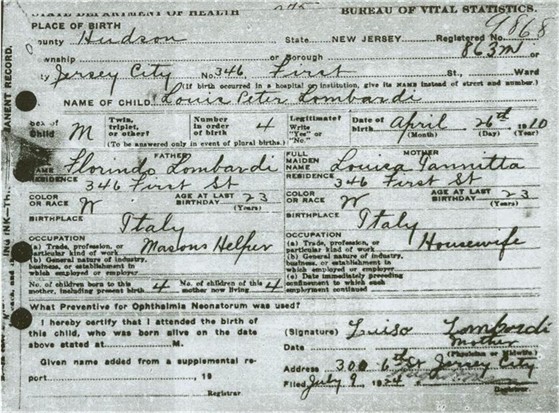 STATE DEPARTMENT OF HEALTH BUREAU OF VITAL STATISTICS.
PLACE OF BIRTH 9868
County Hudson State NEW JERSEY. Registered No.
Township or Borough 863m
City Jersey City No. 346 First St., Ward
(If birth occurred in a hospital or institution, give its NAME instead of street and number.)
NAME OF CHILD Louis Peter Lombardi
Sex of Child M Twin, triplet, or other? Number in order of birth 4 Legitimate? Write "Yes" or "No." Date of birth April 26th 1910
(To be answered only in event of plural birth.) (Month) (Day) (Year)
FATHER FULL MAIDEN NAME MOTHER
NAME Florindo Lombardi Louisa Iannitta
RESIDENCE 346 First St RESIDENCE 346 First St
COLOR OR RACE W AGE AT LAST BIRTHDAY 23 (Years) COLOR OR RACE W AGE AT LAST BIRTHDAY 23 (Years)
BIRTHPLACE Italy BIRTHPLACE Italy
OCCUPATION OCCUPATION
(a) Trade, profession, or particular kind of work Masons Helper (a) Trade, profession, or particular kind of work Housewife
(b) General nature of industry, business, or establishment in which employed or employer (b) General nature of industry, business, or establishment in which employed or employer
(c) Date immediately preceding confinement to which such employment continued
No. of children born to this mother, including present birth 4 No. of children of this mother now living 4
What Preventive for Ophthalmia Neonatorum was used?
I hereby certify that I attended the birth of this child, who was born alive on the date above stated at M.
(Signature) Luisa Lombardi
Date Mother
(Physician or Midwife)
Given name added from a supplemental report , 19
Address 300 6th St Jersey City
Filed July 9 1924
Registrar Registrar